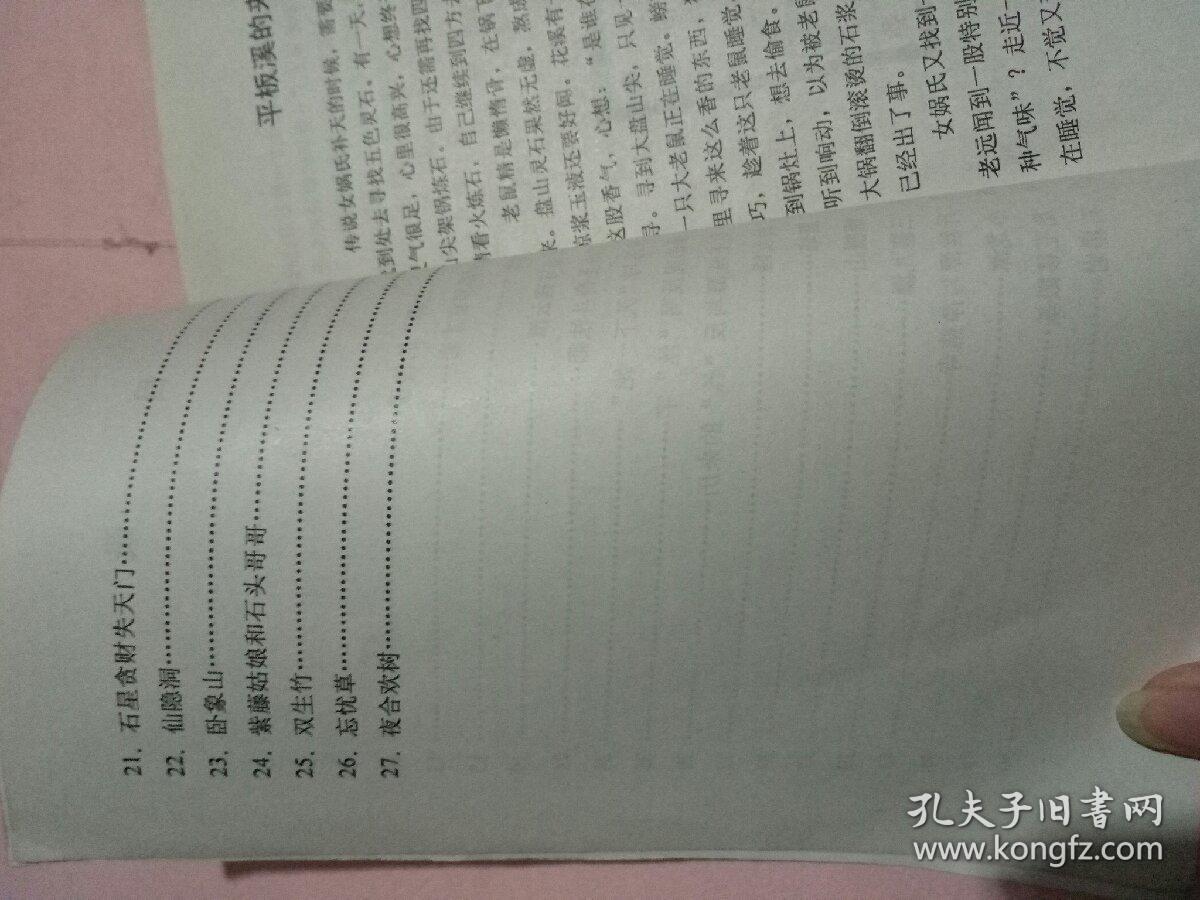 21. 石星贪财失天门
22. 仙隐洞
23. 卧象山
24. 紫藤姑娘和石头哥哥
25. 双生竹
26. 忘忧草
27. 夜合欢树
平板溪的夹
传说女娲氏补天的时候，需要
到处去寻找五色灵石。有一天，
气很足，心里很高兴，心想终
尖架锅炼石。由于还需再找四
看火炼石，自己继续到四方去
老鼠精是懒惰骨，在锅
盘山灵石果然无虚，熬成
琼浆玉液还要好闻。花溪有一
这股香气，心想：“是谁在
寻。寻到大盘山尖，只见一
一只大老鼠正在睡觉。螃
里寻来这么香的东西，
巧，趁着这只老鼠睡觉
到锅灶上，想去偷食。
听到响动，以为被老鼠
大锅翻倒滚烫的石浆
已经出了事。
女娲氏又找到一
老远闻到一股特别
种气味”？走近一
在睡觉，不觉又
孔夫子旧书网
www.kongfz.com